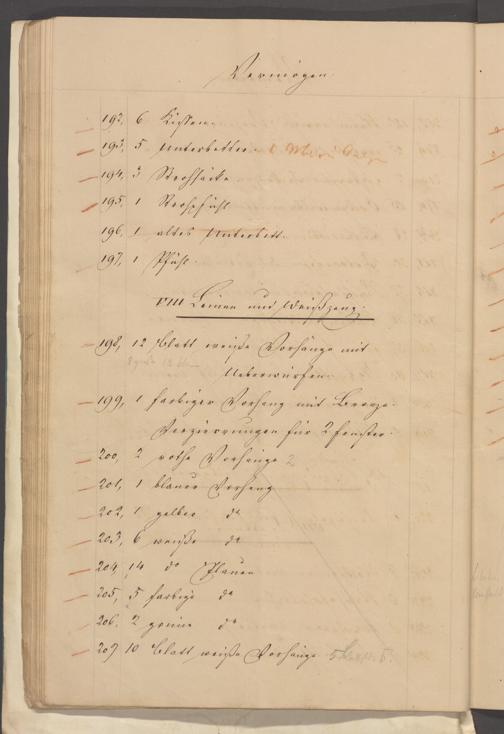 Vermögen.
192, 6 Kissen.
193, 5 Unterbetten. 1
194, 3 Strohsäcke
195, 1 Strohpfühl
196, 1 altes Unterbett.
197, 1 Pfühl.
VIII Leinen und Weißzeug.
198, 12 Blatt weiße Vorhänge mit
Ueberwürfen
199, 1 farbiger Vorhang mit Bronze-
Verzierungen für 2 Fenster.
200, 2 rothe Vorhänge 2
201, 1 blauer Vorhang
202, 1 gelber do
203, 6 weiße do
204, 14 do Planen
205, 5 farbige do
206, 2 grüne do
207 10 Blatt weiße Vorhänge 5